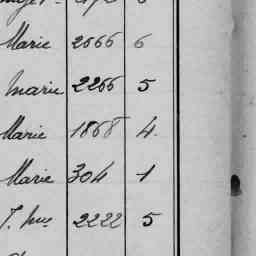 Marie 2666 6
Marie 2266 5
Marie 1868 4
Marie 304 1
2222 5